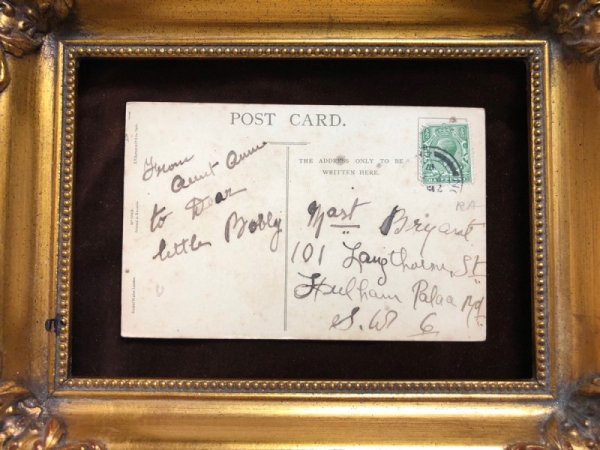 POST CARD.
THE ADDRESS ONLY TO BE
WRITTEN HERE.
From
Aunt Annie
to Dear
little Bobby
Mast Bryant
101 Langthorne St
Fulham Palace Rd
S. W 6